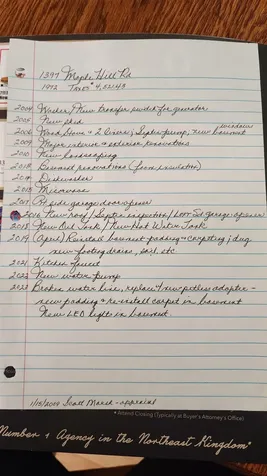 1397 Maple Hill Rd
1972 Taxes $4,521.43
2004 Washer / New transfer switch for generator
2005 New shed
2006 Wood Stove + 2 liners; Septic pump, New basement windows
2009 Major interior + exterior renovations
2010 New landscaping
2012 Basement renovations (foam insulation)
2014 Dishwasher
2015 Microwave
2017 Rt side garage door opener
2016 New roof / Septic inspection / Left Sd Garage opener
2018 New Oil Tank / New Hot Water Tank
2019 (April) Reinstall basement padding + carpeting; dug
new footing drains, soil, etc
2021 Kitchen faucet
2022 New water pump
2023 Broken water line, replace w/ new pitless adapter -
new padding + re-install carpet in basement
New LED lights in basement.
Scott March - appraisal
• Attend Closing (Typically at Buyer's Attorney's Office)
Number 1 Agency in the Northeast Kingdom"